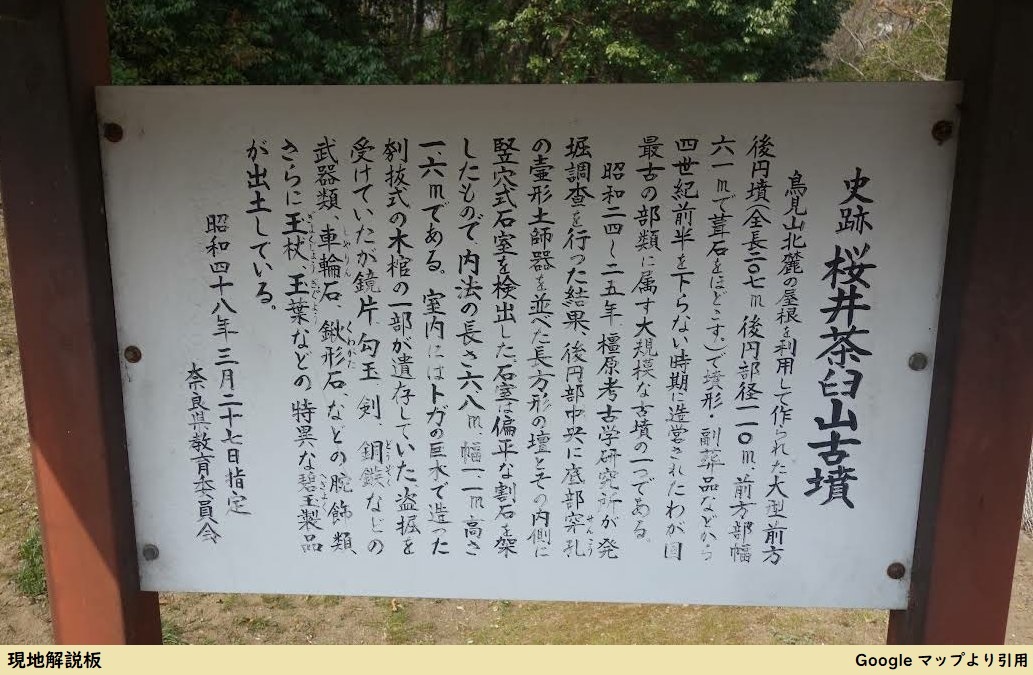 史跡 桜井茶臼山古墳
鳥見山北麓の尾根を利用して作られた大型前方
後円墳(全長二〇七m、後円部径一一〇m、前方部幅
六一mで葺石をほどこす。)で墳形・副葬品などから
四世紀前半を下らない時期に造営されたわが国
最古の部類に属す大規模な古墳の一つである。
昭和二四〜二五年、橿原考古学研究所が発
堀調査を行った結果、後円部中央に底部穿孔
せんこう
の壷形土師器を並べた長方形の壇とその内側に
竪穴式石室を検出した。石室は偏平な割石を架
したもので内法の長さ六・八m、幅一・一m、高さ
一・六mである。室内にはトガの巨木で造った
刳抜式の木棺の一部が遺存していた。盗掘を
受けていたが鏡片、勾玉、剣、銅鏃などの
どうぞく
武器類、車輪石、鍬形石、などの腕飾類、
しゃりん くわがた
さらに玉杖、玉葉などの特異な碧玉製品
ぎょくじょう
が出土している。
昭和四十八年三月二十七日指定
奈良県教育委員会
現地解説板
Google マップより引用